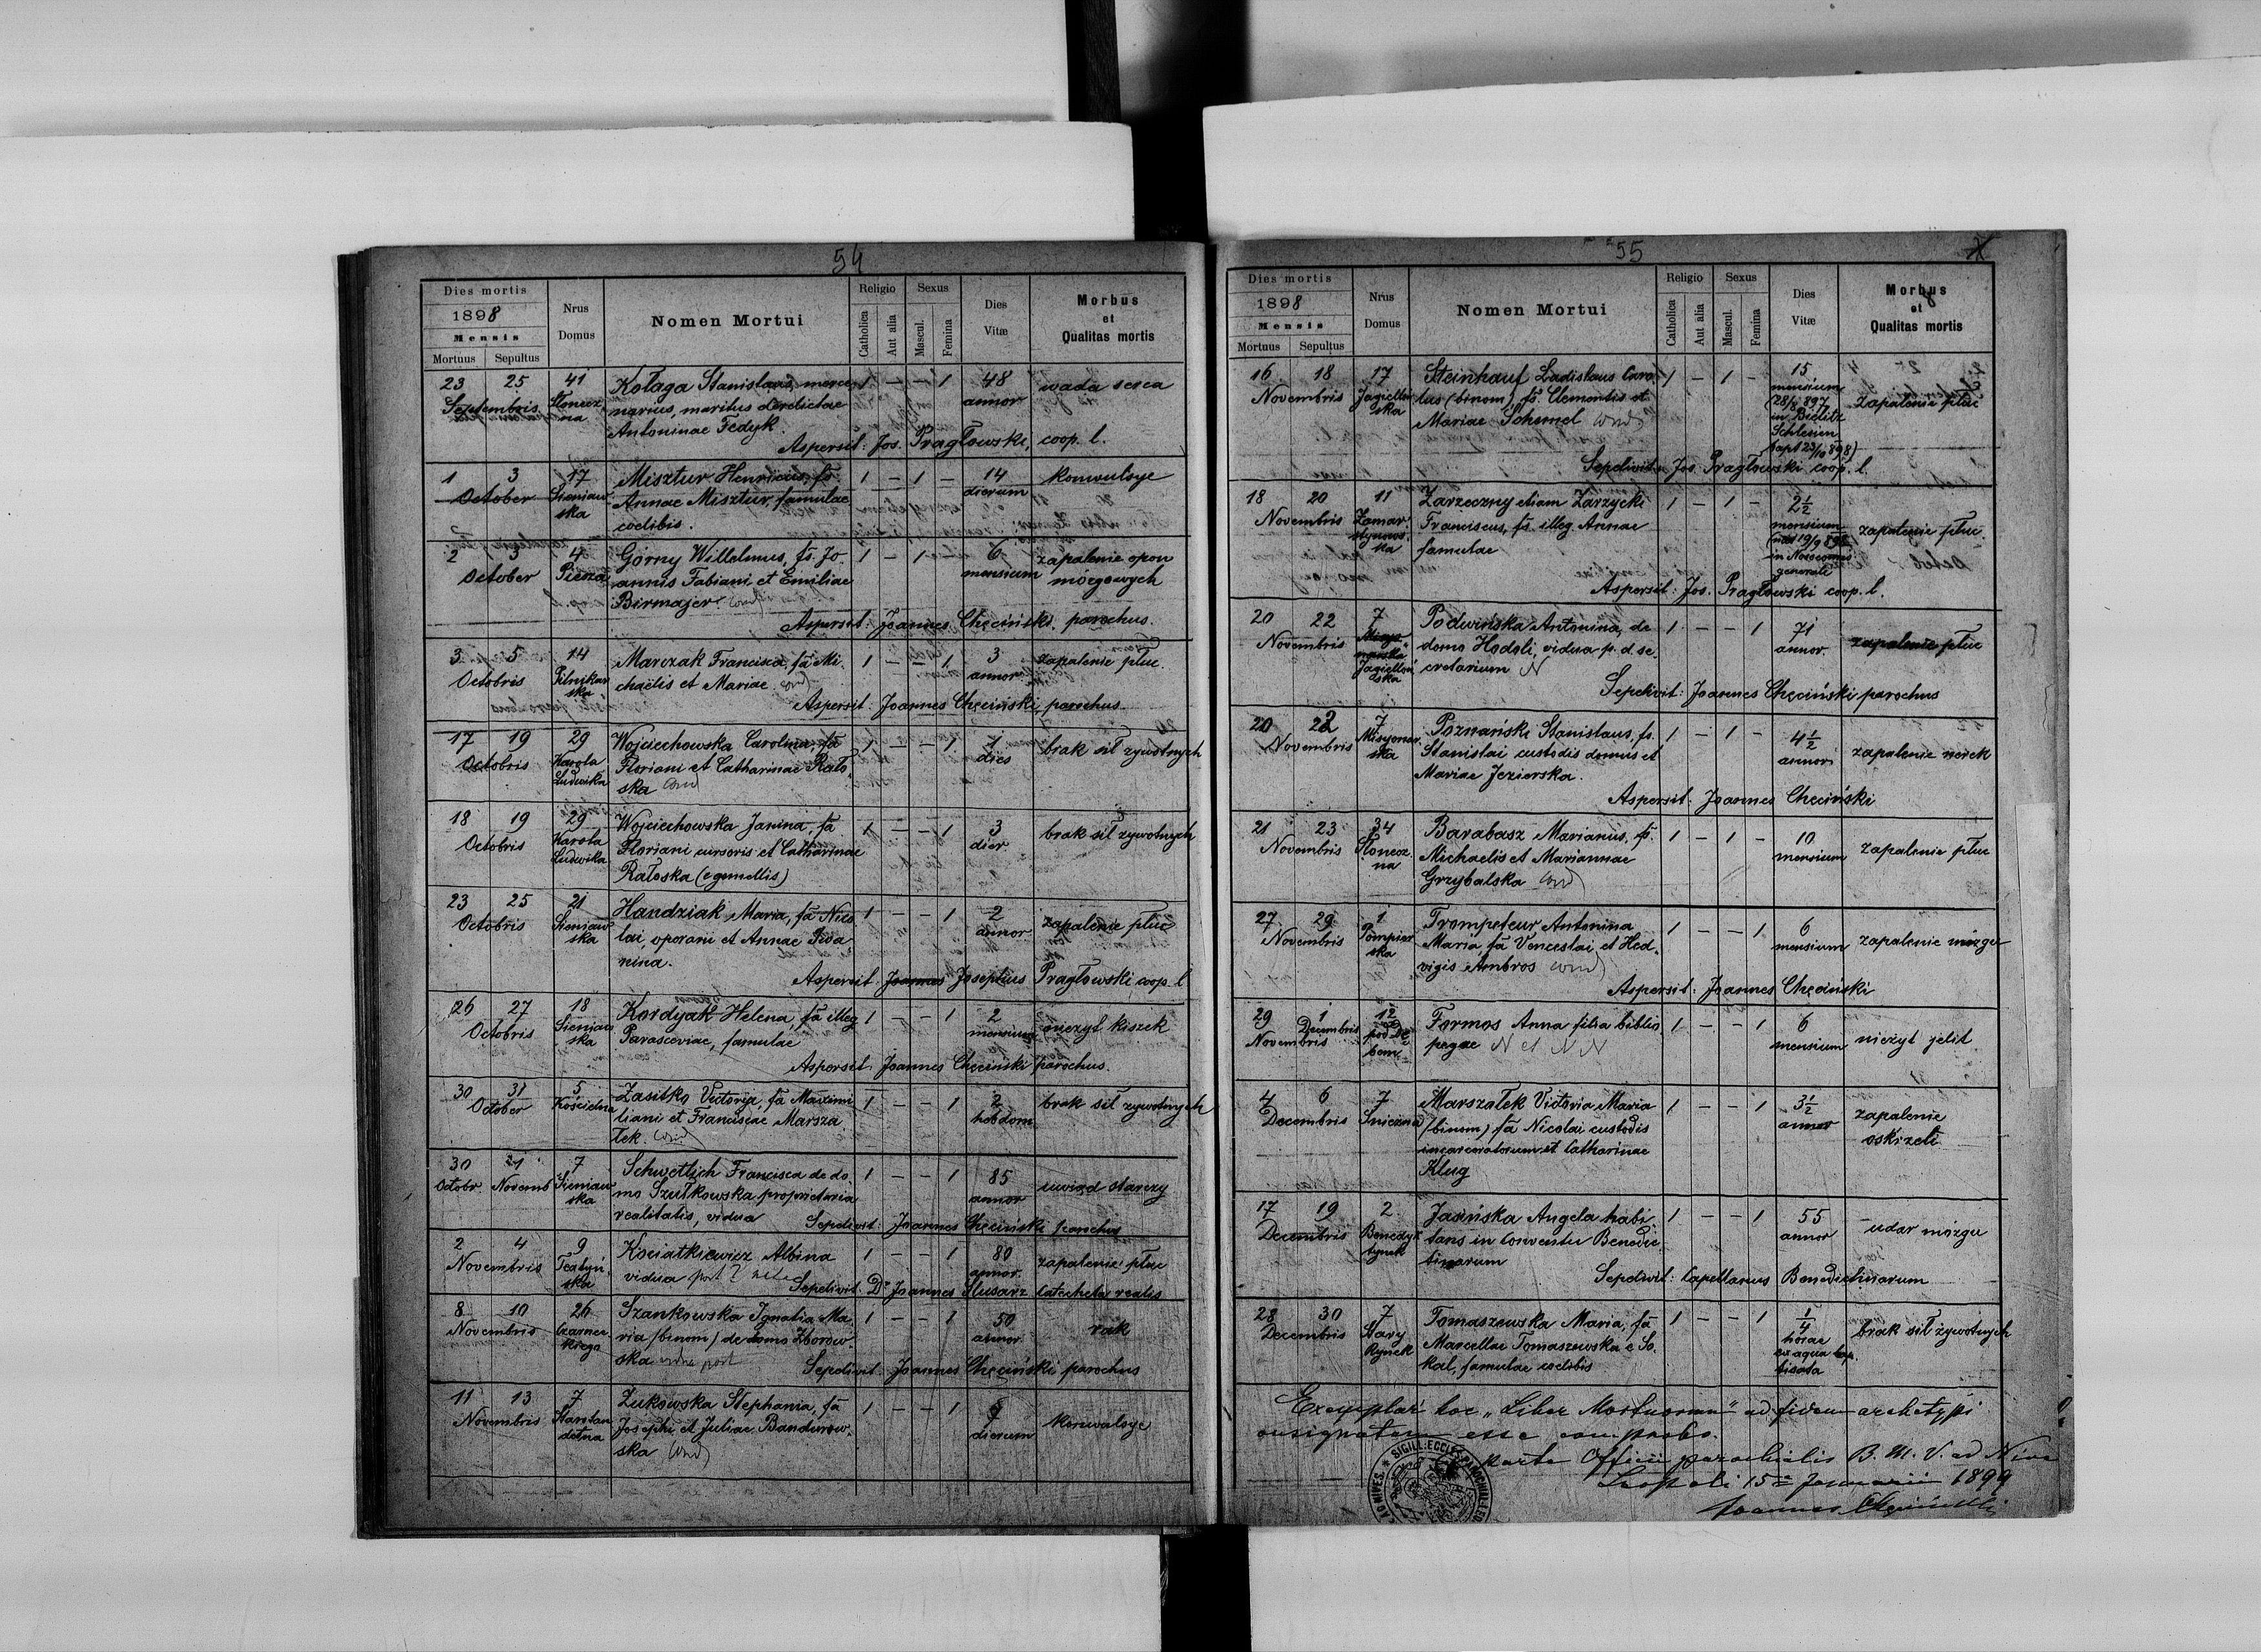 54
Dies mortis
1898
Mensis
Mortuus Sepultus
Nrus Domus
Nomen Mortui
Religio
Catholica
Aut alia
Sexus
Mascul.
Femina
Dies Vitæ
Morbus et Qualitas mortis
23 25 41 Kołaga Stanislaus, merce 1 — — 1 48 wada serca
Septembris Słonecz narius, maritus derelictae annor
na Antoninae Fedyk.
Aspersit: Jos. Pragłowski, coop. l.
1 3 17 Misztur Henricus, fs. 1 — 1 — 14 konwulsye
October Sieniaw Annae Misztur, famulae dierum
ska coelibis.
2 3 4 Górny Willelmus, fs. Jo 1 — 1 — 6 zapalenie opon
October annis Fabiani et Emiliae mensium mózgowych
Birmajer
Aspersit: Joannes Chęciński, parochus.
3 5 14 Marczak Francisca, fa Mi 1 — — 1 3 zapalenie płuc.
Octobris Pilnikar chaëlis et Mariae. annor
ska
Aspersit: Joannes Chęciński, parochus.
17 19 29 Wojciechowska Carolina, fa 1 — — 1 1 brak sił żywotnych
Octobris Karola Floriani et Catharinae Rało dies
Ludwika ska
18 19 29 Wojciechowska Janina, fa 1 — — 1 3 brak sił żywotnych
Octobris Karola Floriani cursoris et Catharinae dier
Ludwika Rałoska (e gemellis)
23 25 21 Handziak Maria, fa Nico 1 — — 1 2 zapalenie płuc
Octobris Sieniaw lai, operarii et Annae Iwa annor
ska nina.
Aspersit: Joannes Josephus Pragłowski coop. l
26 27 18 Kordyak Helena, fa illeg 1 — — 1 2 nieżyt kiszek
Octobris Sieniaw Parasceviae, famulae mensium
ska
Aspersit: Joannes Chęciński parochus.
30 31 5 Zasitko Victoria, fa Maximi 1 — — 1 2 brak sił żywotnych
October Kościelna liani et Franciscae Marsza hebdom
łek.
30 7 Schwetlich Francisca de do 1 — — 1 85 uwiąd starczy
Octobr. Novemb Sieniaw mo Szułkowska proprietaria annor
ska realitatis, vidua
Sepelivit: Joannes Chęciński parochus
2 4 9 Kościatkiewicz Albina 1 — — 1 80 zapalenie płuc
Novembris Teatyń vidua annor.
ska
Sepelivit: Dr Joannes Ślusarz catecheta realis
8 10 26 Szankowska Ignatia Ma 1 — — 1 50 rak
Novembris Czarnec ria (binom) de domo Zborow annor
kiego ska
Sepelivit: Joannes Chęciński parochus
11 13 7 Żukowska Stephania, fa 1 — — 1 konwulsye
Novembris Josephi et Juliae Bandurow dierum
ska
55
Dies mortis
1898
Mensis
Mortuus Sepultus
Nrus Domus
Nomen Mortui
Religio
Catholica
Aut alia
Sexus
Mascul.
Femina
Dies Vitæ
Morbus et Qualitas mortis
16 18 17 Steinhauf Ladislaus Caro 1 — 1 — 15
Novembris Jagielloń lus (binom) fs. Clementis et mensium zapalenie płuc
ska Mariae Schemel (28/8 897
in Bielitz
Schlesien
bapt 23/10 898)
Sepelivit: Jos. Pragłowski coop. l.
18 20 11 Zarzeczny etiam Zarzycki 1 — 1 — 2 1/2
Novembris Zamar Franciscus, fs. illeg. Annae mensium zapalenie płuc
stynows famulae
ka in Nosocomio
generali
Aspersit: Jos. Pragłowski coop. l.
20 22 7 Podwińska Antonina, de 1 — — 1 71 zapalenie płuc
Novembris domo Hodoli, vidua p. d. se annor.
Jagielloń cretarium N
ska
Sepelivit: Joannes Chęciński parochus
20 22 7 Poznański Stanislaus, fs. 1 — 1 — 4 1/2 zapalenie nerek
Novembris Misyonar Stanislai custodis domus et annor
ska Mariae Jezierska.
Aspersit: Joannes Chęciński
21 23 34 Barabasz Marianus, fs. 1 — 1 — 10 zapalenie płuc
Novembris Słonecz Michaelis et Mariannae mensium
na Grzybalska
27 29 1 Trompeteur Antonina 1 — — 1 6 zapalenie mózgu
Novembris Pompier Maria, fa Venceslai et Hed mensium
ska vigis Ambros
Aspersit: Joannes Chęciński
29 1 12 Formos Anna filia biblio 1 — — 1 6 nieżyt jelit
Novembris Decembris pod Dę pegae N et N N mensium
bem
4 6 7 Marszałek Victoria Maria 1 — — 1 3 1/2 zapalenie
Decembris Śnieżna (binom) fa Nicolai custodis annor oskrzeli
incarceratorum et Catharinae
Klug
17 19 2 Jasińska Angela habi 1 — — 1 55 udar mózgu
Decembris Benedyk tans in Conventu Benedic annor
tynek tinarum
Sepelivit: Capellanus Benedictinarum
28 30 7 Tomaszewska Maria, fa 1 — — 1 1/4 brak sił żywotnych
Decembris Stary Marcellae Tomaszewska e So horae
Rynek kal, famulae coelibis ex aqua bap.
tisata
Exemplar hoc „Liber Mortuorum" ad fidem archetypi
consignatum esse comprobo.
parte Officii parochialis B. M. V. ad Nives
Leopoli 15 Januarii 1899
Joannes Chęciński
SIGILL: ECCLES: PAROCHIAL: AD NIVES